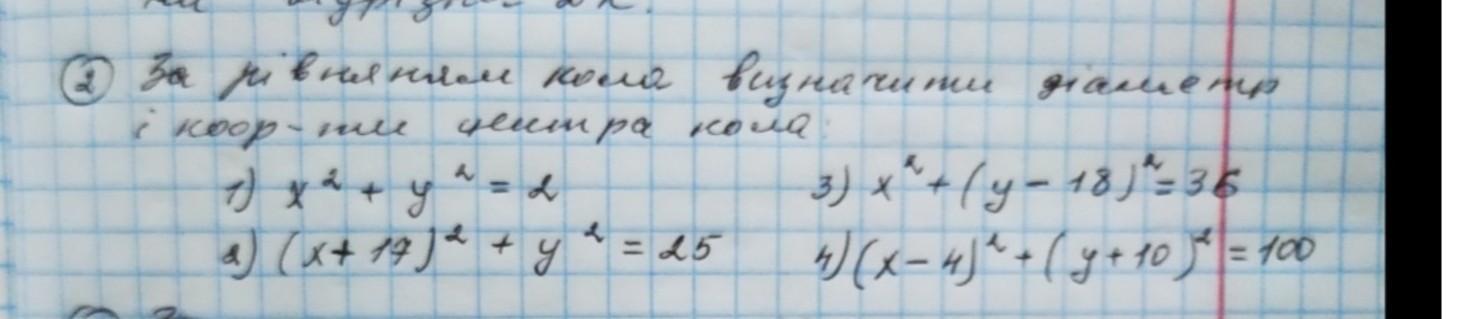 ② За рівнянням кола визначити діаметр
і коор-ти центра кола:
1) x² + y² = 2
3) x² + (y - 18)² = 36
2) (x + 17)² + y² = 25
4) (x - 4)² + (y + 10)² = 100